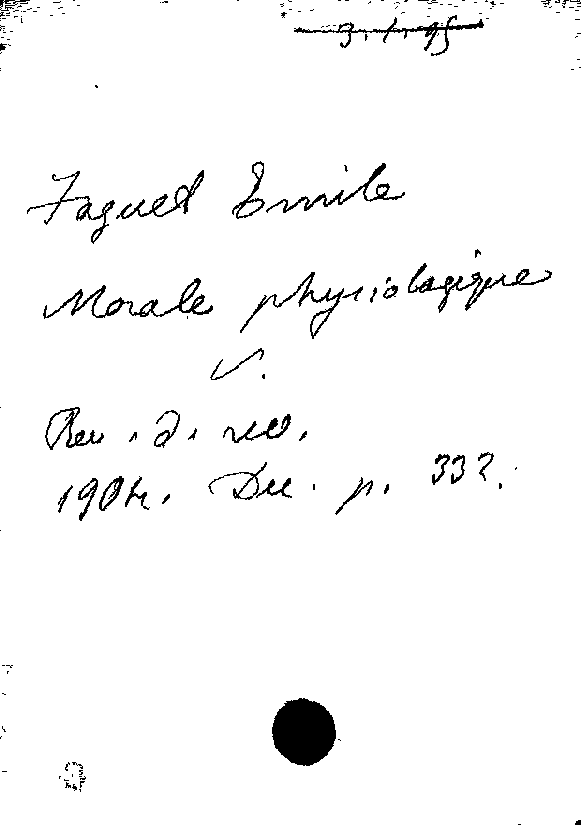 3.1.95
Faguet Emile
Morale physiologique
v.
Rev. d. rev.
1904. Dec. p. 332.